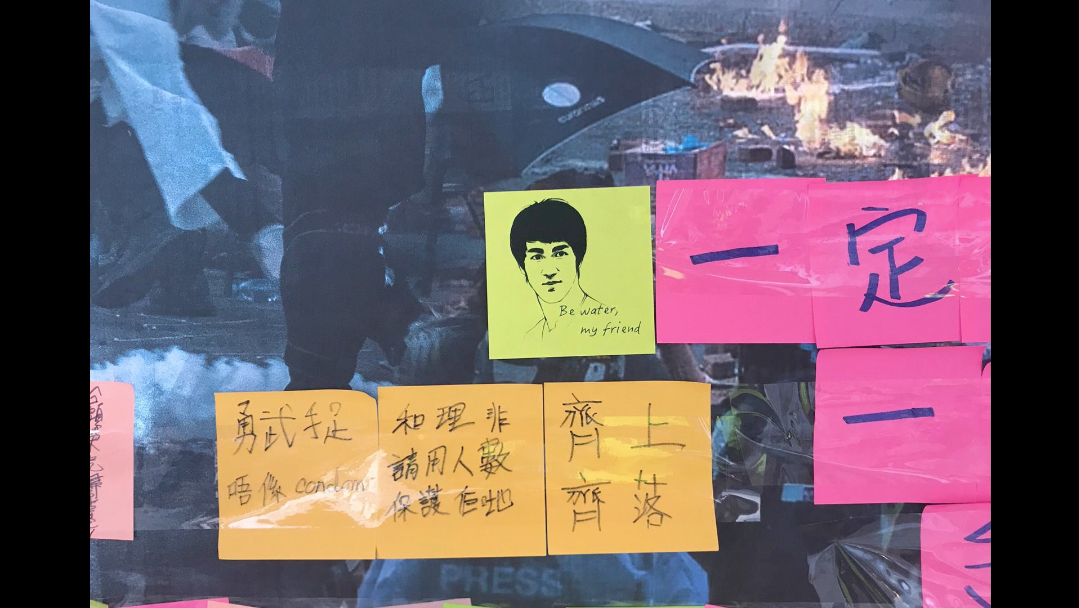 Be water,
my friend
一 定
一
勇武手足
唔係 condom
和理非
請用人數
保護佢哋
齊上
齊落
PRESS